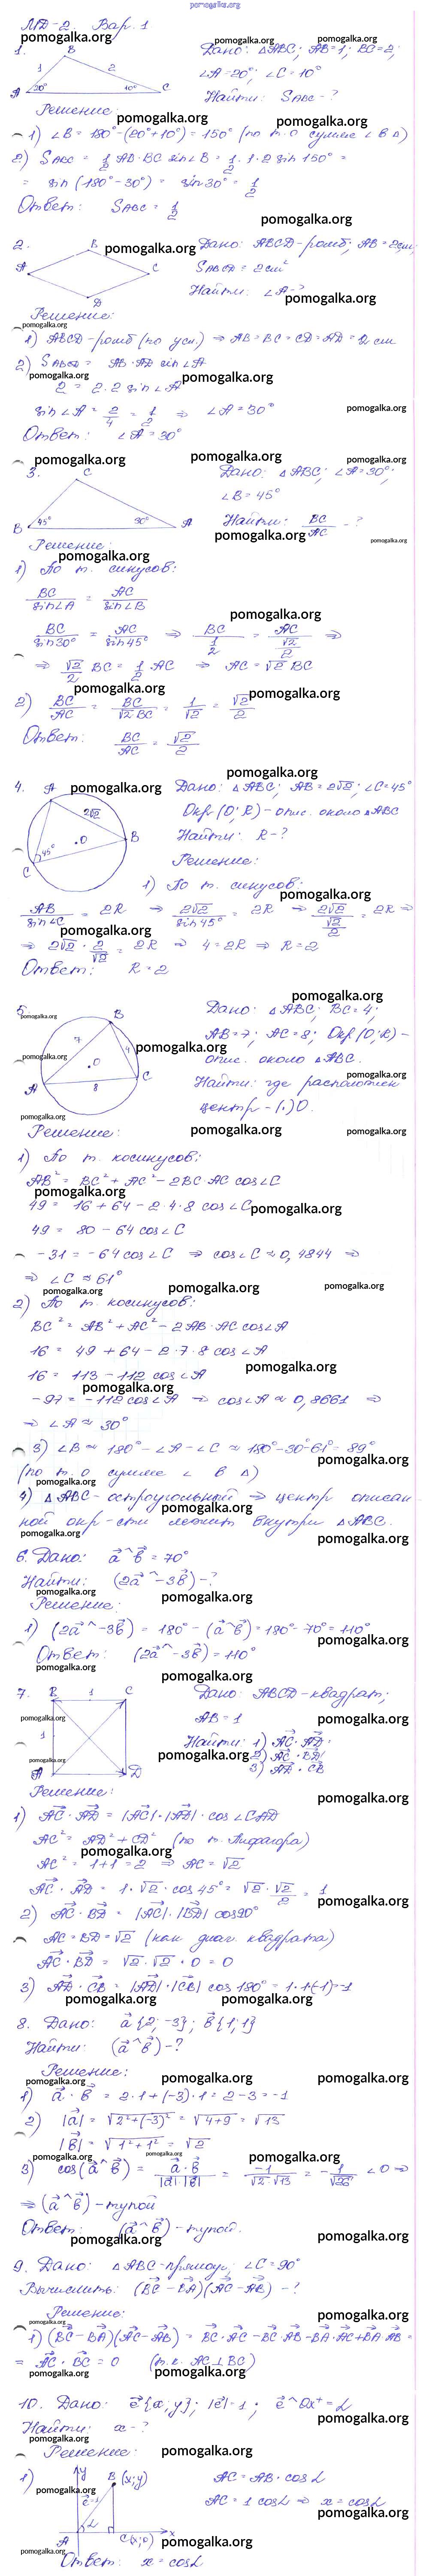 pomogalka.org
МД-2. Вар. 1
1. Дано: △ABC; AB=1; BC=2;
∠A=20°; ∠C=10°
Найти: S_ABC - ?
B
1 2
A 20° 10° C
Решение:
1) ∠B = 180°-(20°+10°) = 150° (по т. о сумме ∠ в △)
2) S_ABC = 1/2 AB·BC sin∠B = 1/2·1·2 sin150° =
= sin(180°-30°) = sin30° = 1/2
Ответ: S_ABC = 1/2
2. Дано: ABCD-ромб; AB=2см;
S_ABCD = 2см²
Найти: ∠A-?
B
A C
D
Решение:
1) ABCD-ромб (по усл.) ⇒ AB=BC=CD=AD=2см
2) S_ABCD = AB·AD sin∠A
2 = 2·2 sin∠A
sin∠A = 2/4 = 1/2 ⇒ ∠A=30°
Ответ: ∠A=30°
3. Дано: △ABC; ∠A=30°;
∠B=45°
Найти: BC/AC - ?
C
B 45° 30° A
Решение:
1) По т. синусов:
BC/sin∠A = AC/sin∠B
BC/sin30° = AC/sin45° ⇒ BC/(1/2) = AC/(√2/2) ⇒
⇒ √2/2 BC = 1/2 AC ⇒ AC=√2 BC
2) BC/AC = BC/(√2 BC) = 1/√2 = √2/2
Ответ: BC/AC = √2/2
4. Дано: △ABC; AB=2√2; ∠C=45°
Окр(O; R)-опис. около △ABC
Найти: R-?
A
2√2
O B
C 45°
Решение:
1) По т. синусов:
AB/sin∠C = 2R ⇒ 2√2/sin45° = 2R ⇒ 2√2/(√2/2) = 2R ⇒
⇒ 2√2·2/√2 = 2R ⇒ 4=2R ⇒ R=2
Ответ: R=2
5. Дано: △ABC; BC=4;
AB=7; AC=8; Окр(O;R)-
опис. около △ABC.
Найти: где расположен
центр-(.)O.
B
7 4
O
A 8 C
Решение:
1) По т. косинусов:
AB² = BC²+AC²-2BC·AC cos∠C
49 = 16+64-2·4·8 cos∠C
49 = 80-64 cos∠C
-31 = -64 cos∠C ⇒ cos∠C ≈ 0,4844 ⇒
⇒ ∠C ≈ 61°
2) По т. косинусов:
BC² = AB²+AC²-2AB·AC cos∠A
16 = 49+64-2·7·8 cos∠A
16 = 113-112 cos∠A
-97 = -112 cos∠A ⇒ cos∠A ≈ 0,8661 ⇒
⇒ ∠A ≈ 30°
3) ∠B ≈ 180°-∠A-∠C ≈ 180°-30°-61° = 89°
(по т. о сумме ∠ в △)
4) △ABC-остроугольный ⇒ центр описан-
ной окр-сти лежит внутри △ABC.
6. Дано: a⃗^b⃗ = 70°
Найти: (2a⃗^-3b⃗)-?
Решение:
1) (2a⃗^-3b⃗) = 180°-(a⃗^b⃗) = 180°-70° = 110°
Ответ: (2a⃗^-3b⃗) = 110°
7. Дано: ABCD-квадрат;
AB=1
Найти: 1) AC⃗·AD⃗;
2) AC⃗·BD⃗;
3) AD⃗·CB⃗
B 1 C
1
A D
Решение:
1) AC⃗·AD⃗ = |AC⃗|·|AD⃗|·cos∠CAD
AC² = AD²+CD² (по т. Пифагора)
AC² = 1+1=2 ⇒ AC=√2
AC⃗·AD⃗ = 1·√2·cos45° = √2·√2/2 = 1
2) AC⃗·BD⃗ = |AC⃗|·|BD⃗| cos90°
AC=BD=√2 (как диаг. квадрата)
AC⃗·BD⃗ = √2·√2·0 = 0
3) AD⃗·CB⃗ = |AD⃗|·|CB⃗| cos180° = 1·1·(-1)=-1
8. Дано: a⃗{2;-3}; b⃗{1;1}
Найти: (a⃗^b⃗)-?
Решение:
1) a⃗·b⃗ = 2·1+(-3)·1 = 2-3 = -1
2) |a⃗| = √(2²+(-3)²) = √(4+9) = √13
|b⃗| = √(1²+1²) = √2
3) cos(a⃗^b⃗) = a⃗·b⃗/(|a⃗|·|b⃗|) = -1/(√2·√13) = -1/√26 < 0 ⇒
⇒ (a⃗^b⃗)-тупой
Ответ: (a⃗^b⃗)-тупой.
9. Дано: △ABC-прямоуг; ∠C=90°
Вычислить: (BC⃗-BA⃗)(AC⃗-AB⃗)-?
Решение:
1) (BC⃗-BA⃗)(AC⃗-AB⃗) = BC⃗·AC⃗-BC⃗·AB⃗-BA⃗·AC⃗+BA⃗·AB⃗=
= AC⃗·BC⃗ = 0 (т.к. AC⊥BC)
10. Дано: e⃗{x;y}; |e⃗|=1; e⃗^Ox⁺=α
Найти: x-?
Решение:
1) y B(x;y) AC=AB·cosα
e⃗=1 AC=1·cosα ⇒ x=cosα
α
A C(x;0) x
Ответ: x=cosα